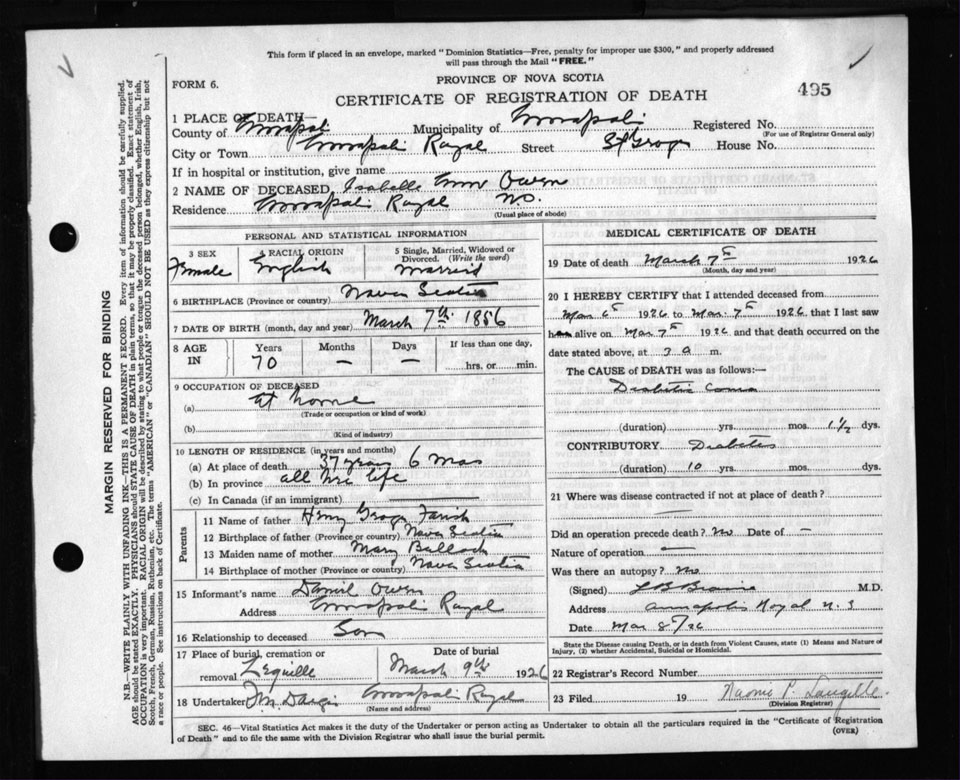 This form if placed in an envelope, marked "Dominion Statistics—Free, penalty for improper use $300," and properly addressed
will pass through the Mail "FREE."
FORM 6.
PROVINCE OF NOVA SCOTIA
CERTIFICATE OF REGISTRATION OF DEATH
495
1 PLACE OF DEATH—
County of Annapolis Municipality of Annapolis Registered No.
(For use of Registrar General only)
City or Town Annapolis Royal Street St George House No.
If in hospital or institution, give name
2 NAME OF DECEASED Isabelle Ann Owen
Residence Annapolis Royal N.S.
(Usual place of abode)
PERSONAL AND STATISTICAL INFORMATION
3 SEX 4 RACIAL ORIGIN 5 Single, Married, Widowed or
Divorced. (Write the word)
Female English Married
6 BIRTHPLACE (Province or country) Nova Scotia
7 DATE OF BIRTH (month, day and year) March 7th 1856
8 AGE IN Years Months Days If less than one day,
70 — — hrs. or min.
9 OCCUPATION OF DECEASED
(a) At home
(Trade or occupation or kind of work)
(b)
(Kind of industry)
10 LENGTH OF RESIDENCE (in years and months)
(a) At place of death 37 years 6 mos
(b) In province all her life
(c) In Canada (if an immigrant)
Parents
11 Name of father Henry George Farish
12 Birthplace of father (Province or country) Nova Scotia
13 Maiden name of mother Mary
14 Birthplace of mother (Province or country) Nova Scotia
15 Informant's name Daniel Owen
Address Annapolis Royal
16 Relationship to deceased Son
17 Place of burial, cremation or Date of burial
removal Lequille March 9th 1926
18 Undertaker Annapolis Royal
(Name and address)
MEDICAL CERTIFICATE OF DEATH
19 Date of death March 7th 1926
(Month, day and year)
20 I HEREBY CERTIFY that I attended deceased from
Mar 6th 1926 to Mar. 7th 1926, that I last saw
her alive on Mar 7th 1926 and that death occurred on the
date stated above, at 3 a m.
The CAUSE of DEATH was as follows:—
Diabetic Coma
(duration) yrs. mos. 1½ dys.
CONTRIBUTORY Diabetes
(duration) 10 yrs. mos. dys.
21 Where was disease contracted if not at place of death?
—
Did an operation precede death? No Date of —
Nature of operation —
Was there an autopsy? No
(Signed) M.D.
Address Annapolis Royal N.S
Date Mar 8/26
State the Disease causing Death, or in death from Violent Causes, state (1) Means and Nature of
Injury, (2) whether Accidental, Suicidal or Homicidal.
22 Registrar's Record Number
23 Filed 19 Naomi P. Langille
(Division Registrar)
SEC. 46—Vital Statistics Act makes it the duty of the Undertaker or person acting as Undertaker to obtain all the particulars required in the "Certificate of Registration
of Death" and to file the same with the Division Registrar who shall issue the burial permit.
(OVER)
MARGIN RESERVED FOR BINDING
N.B.—WRITE PLAINLY WITH UNFADING INK—THIS IS A PERMANENT RECORD. Every item of information should be carefully supplied.
AGE should be stated EXACTLY. PHYSICIANS should STATE CAUSE OF DEATH in plain terms, so that it may be properly classified. Exact statement of
OCCUPATION is very important. RACIAL ORIGIN will be described by stating to what people or tongue the deceased person belonged, whether English, Irish,
Scotch, French, German, Russian, Ruthenian, etc. The terms "AMERICAN" or "CANADIAN" SHOULD NOT BE USED as they express citizenship but not
a race or people. See instructions on back of Certificate.